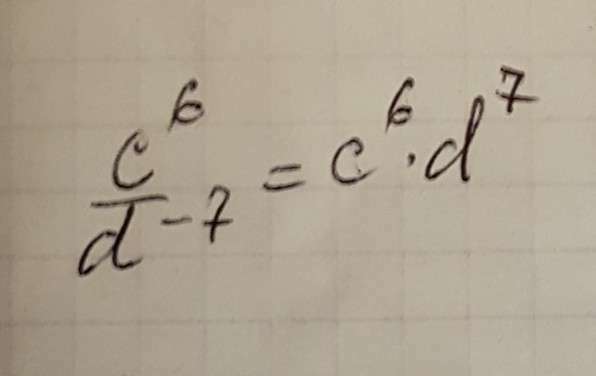 c⁶/d⁻⁷ = c⁶·d⁷